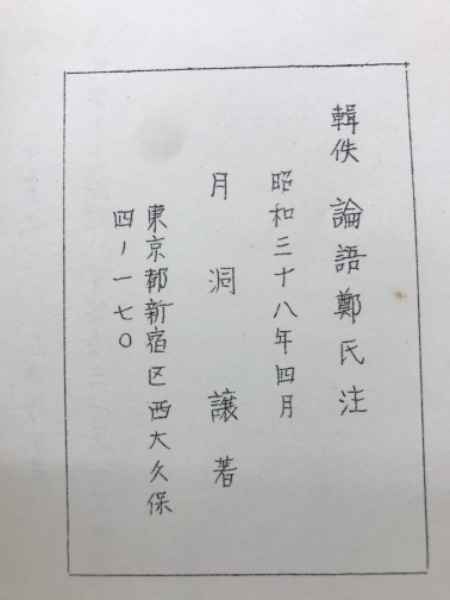 輯佚 論語鄭氏注
昭和三十八年四月
月洞 譲著
東京都新宿区西大久保
四ノ一七〇